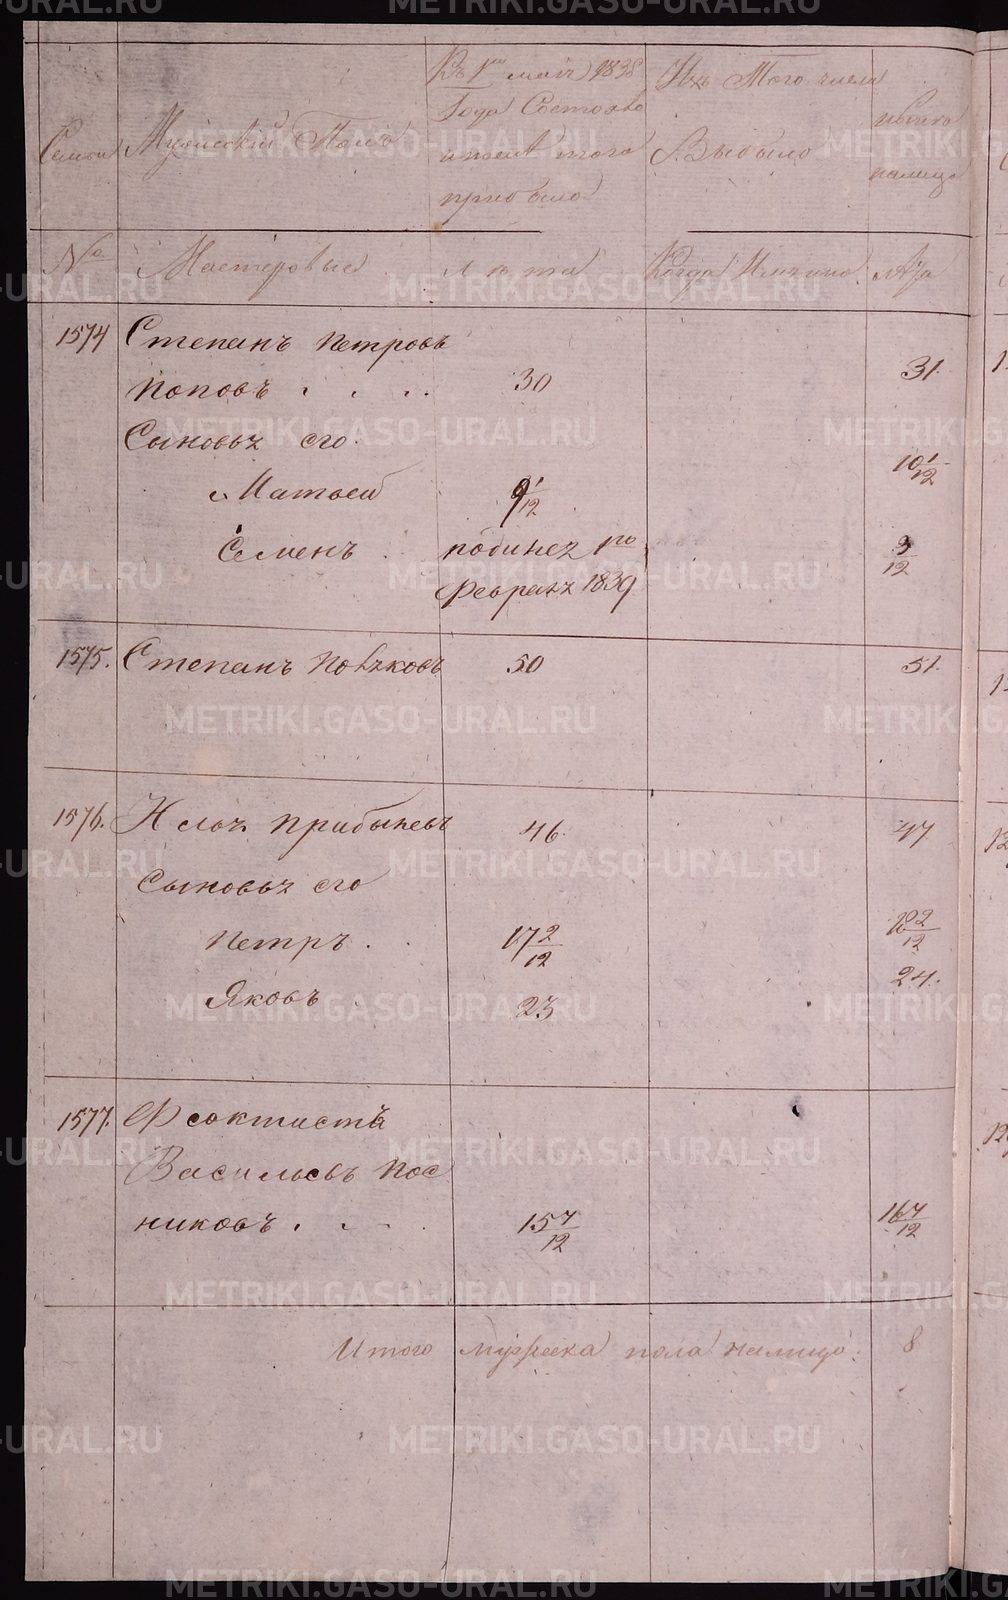 METRIKI.GASO-URAL.RU
Къ 1му маiя 1838
Года Состояло
и после того
прибыло
Изъ Того числа
Выбыло
Семьи
Мужескiй Полъ
налицо
№
Мастеровые
Лѣта
Когда Именно
Лѣта
1574 Степанъ Петровъ
Поповъ . . . . 30 31.
Сыновья его.
Матвей 9 1/12 10 1/12
Семенъ . родился 1го 3/12
Февраля 1839
1575. Степанъ Повѣковъ 50 51.
1576. Илья Прибылевъ 46. 47
Сыновья его
Петръ . . 17 2/12 18 2/12
Яковъ . 23 24.
1577. Феоктистъ
Васильевъ Пос
никовъ . . . . 15 7/12 16 7/12
Итого мужеска пола налицо. 8